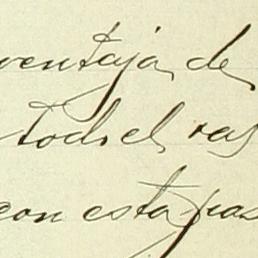 ventaja de
todo el ras
con esta pas